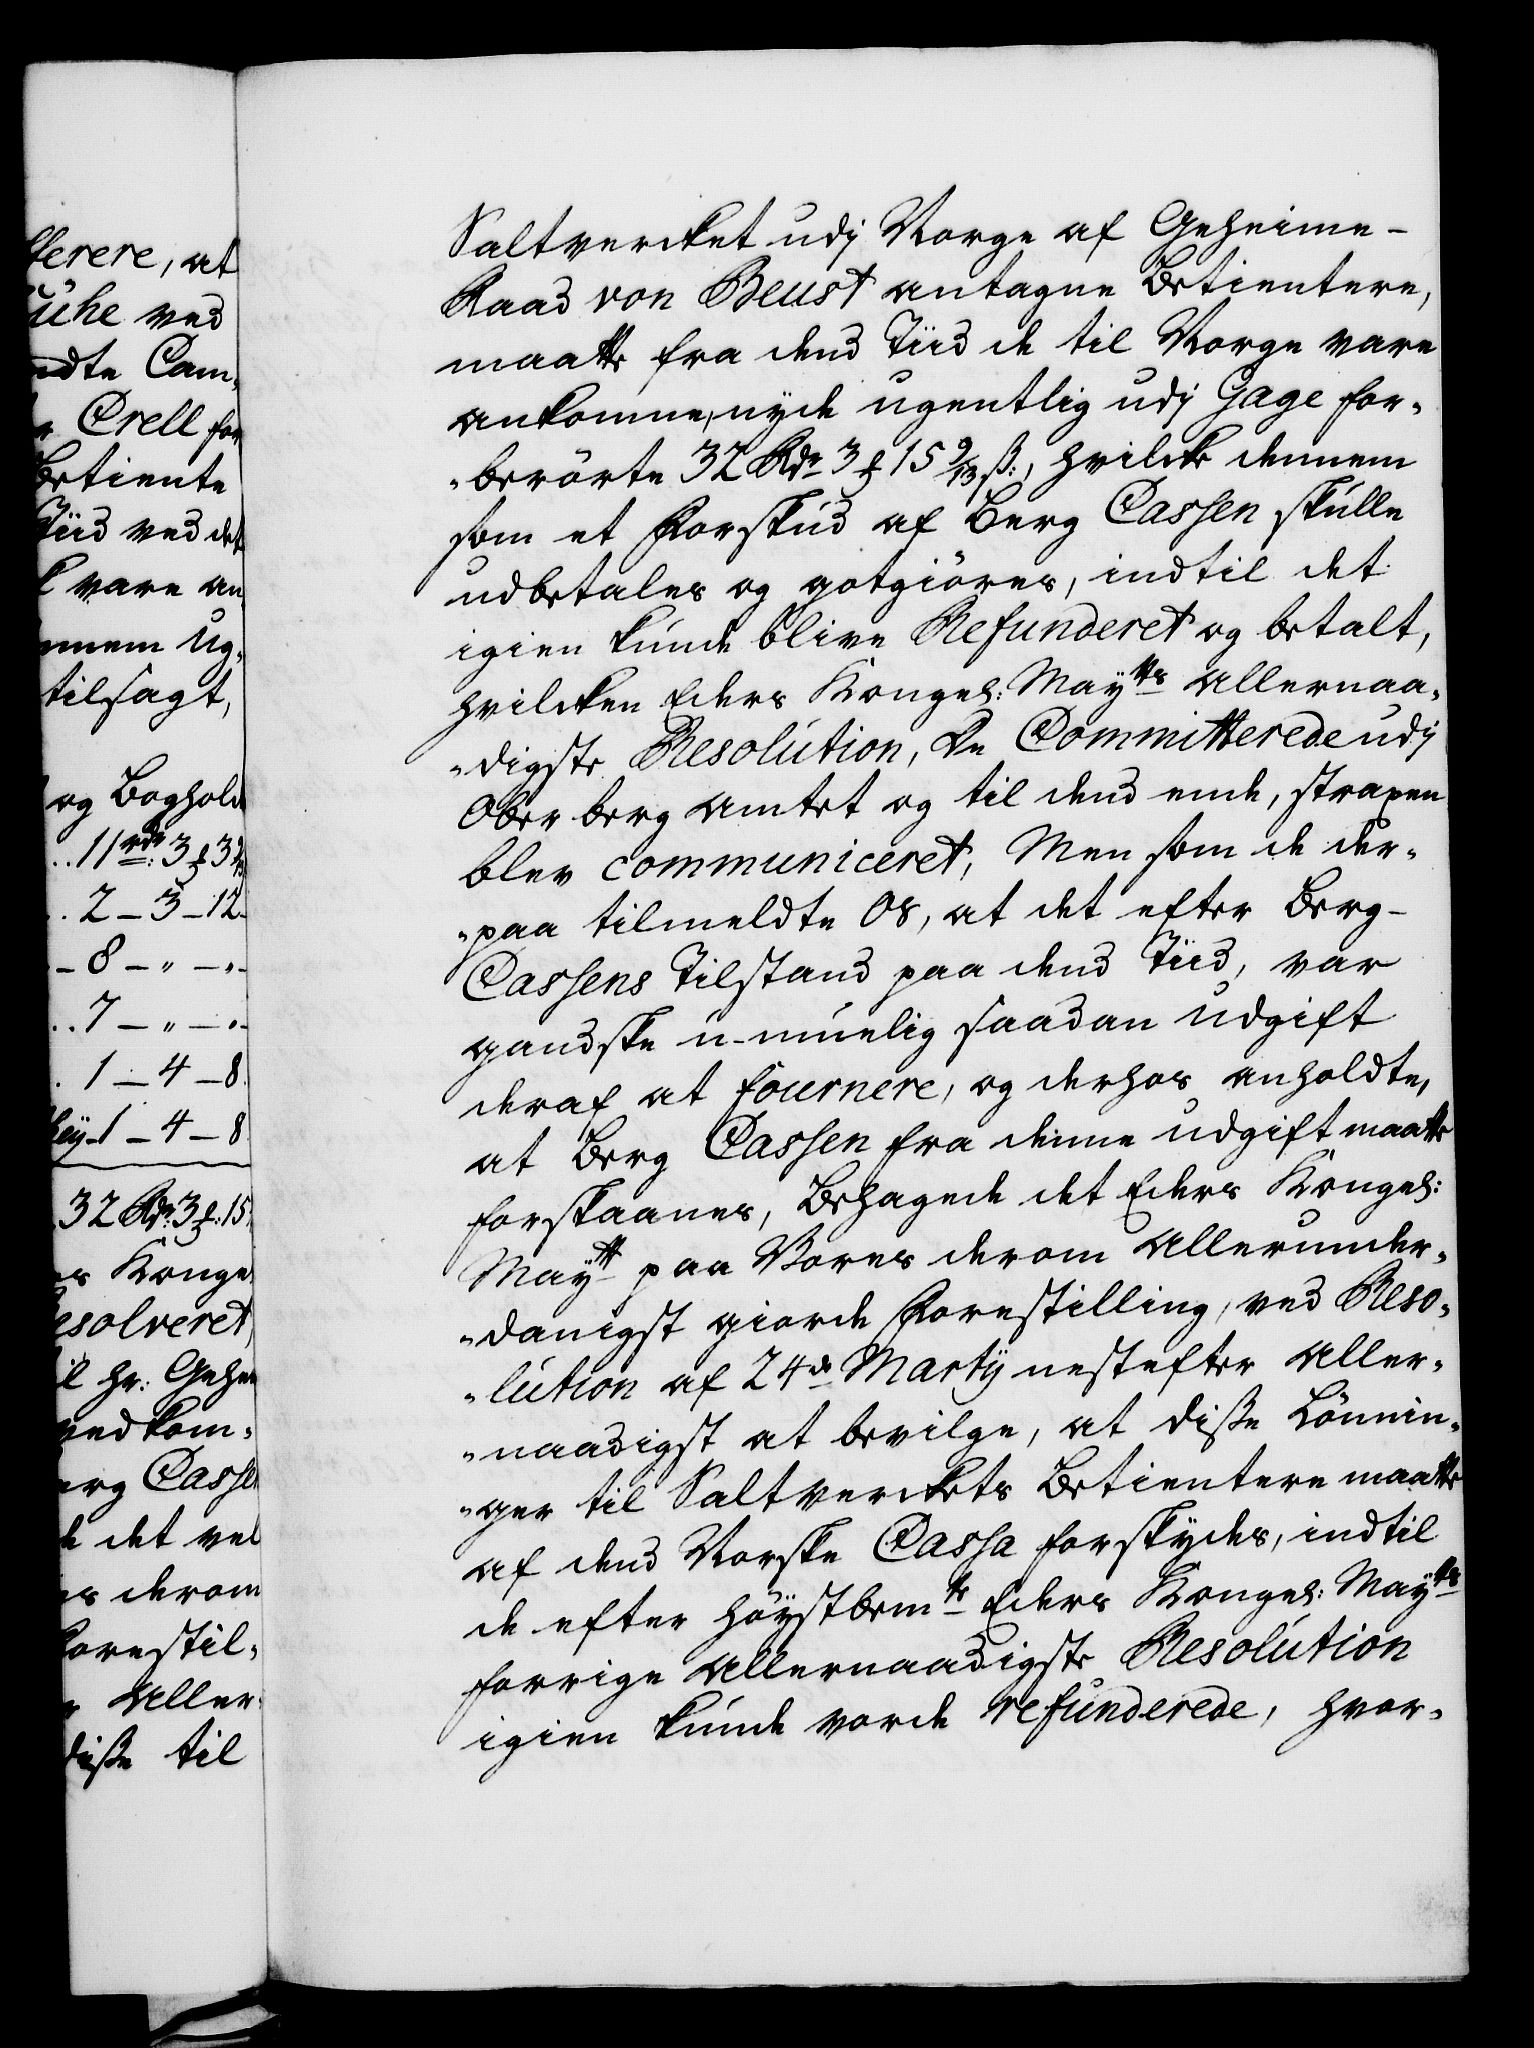 ferere, at
ühe ved
ndte Cam-
r Crell for
Betiente
Tiid ved det
k vare an-
nnem Ug-
tilsagt,
og Boghold
..11 rdr: 3 ℔ 3
..2 – 3 – 12
– 8 – „ – „ –
..7 – „ – „ –
. 1 – 4 – 8.
ey – 1 – 4 – 8
32 Rdr. 3 ℔: 15
s Konge
esolveret,
il Hr: Gehei
vedkom-
erg Casse
de det vel
es derom
Forestil-
r Aller-
disse til
Saltvercket udj Norge af Geheime-
Raad von Beust antagne Betientere,
maatte fra dend Tiid de til Norge vare
ankomne, nyde ugentlig udj Gage for-
„berörte 32 Rdr 3 ℔ 15 9/13 ß:, hvilcke dennem
som et Forskud af Berg Cassen skulle
udbetales og gotgiöres, indtil det
igien kunde blive Refunderet og betalt,
hvilcken Eders Kongel: Mayts Allernaa-
„digste Resolution, De Committerede udj
Ober berg Amtet og til dend ende, straxen
blev communiceret, Men som de der-
„paa tilmeldte Os, at det efter Berg-
Cassens Tilstand paa dend Tiid, var
gandske u-muelig saadan udgift
deraf at fournere, og derhos anholdte,
at Berg Cassen fra denne udgift maatte
forskaanes, Behagede det Eders Kongel:
Maytt paa Vores derom Allerunder-
„danigst giorde Forestilling, ved Reso-
„lution af 24de Martij nestefter Aller-
„naadigst at bevilge, at disse Lönnin-
„ger til Saltverckets Betientere maatte
af dend Norske Cassa forskydes, indtil
de efter höystbemte Eders Kongel: Mayts
forrige Allernaadigste Resolution
igien kunde vorde refunderede, hvor-